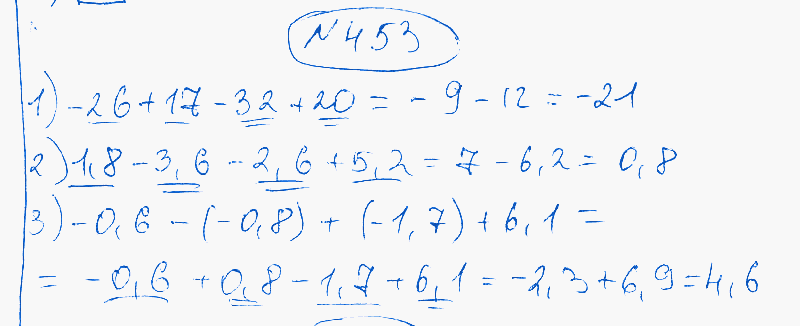 N 453
1) -26 + 17 - 32 + 20 = - 9 - 12 = -21
2) 1,8 - 3,6 - 2,6 + 5,2 = 7 - 6,2 = 0,8
3) -0,6 - (-0,8) + (-1,7) + 6,1 =
= -0,6 + 0,8 - 1,7 + 6,1 = -2,3 + 6,9 = 4,6